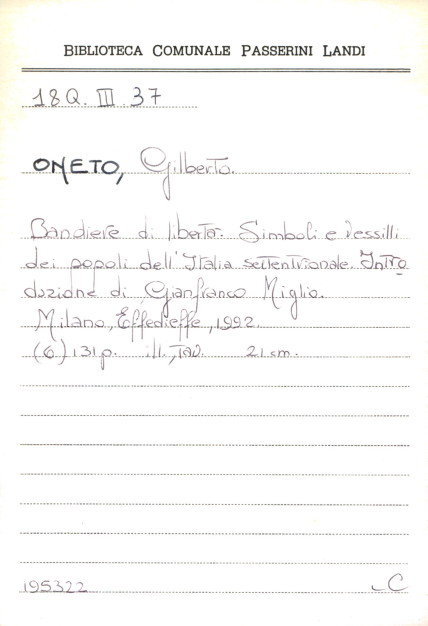 BIBLIOTECA COMUNALE PASSERINI LANDI
18Q. III. 37
ONETO, Gilberto.
Bandiere di libertà. Simboli e vessilli
dei popoli dell'Italia settentrionale. Intro
duzione di Gianfranco Miglio.
Milano, Effedieffe, 1992.
(6) 131 p. ill., tav. 21 cm.
195322 C